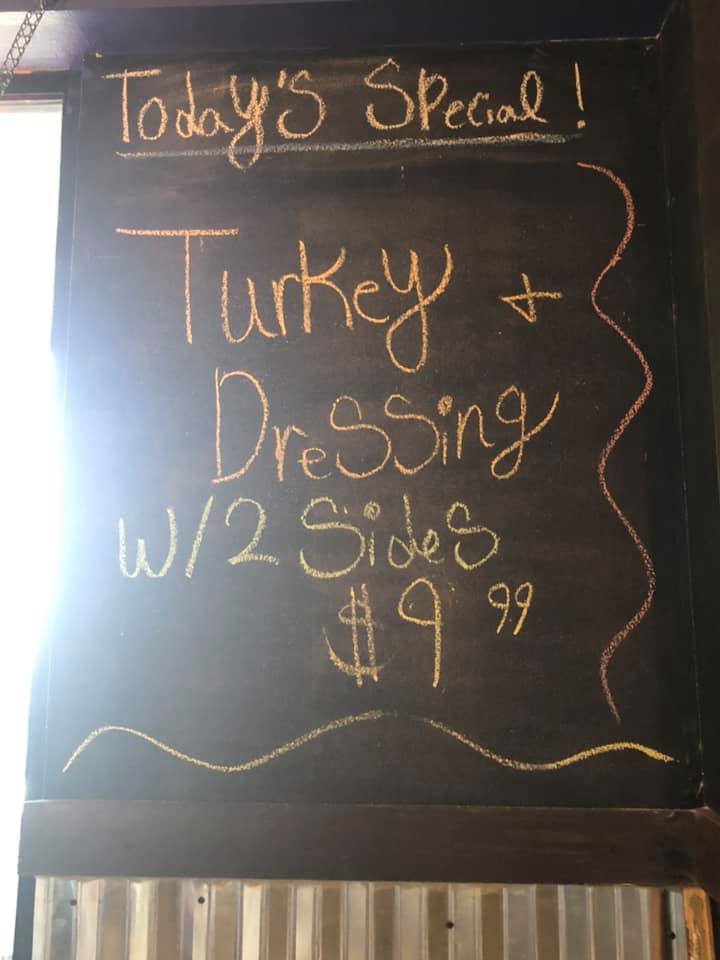 Today's Special!
Turkey +
Dressing
W/2 Sides
$9 99